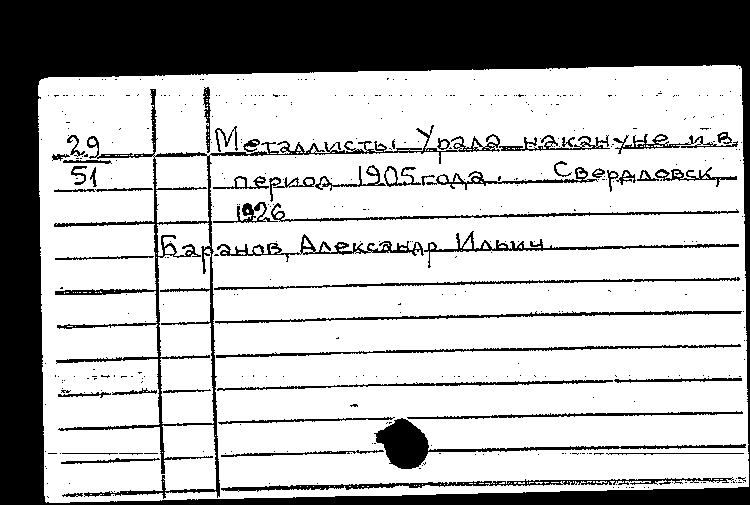 29
51
Металлисты Урала накануне и в
период 1905 года. Свердловск,
1926
Баранов, Александр Ильич